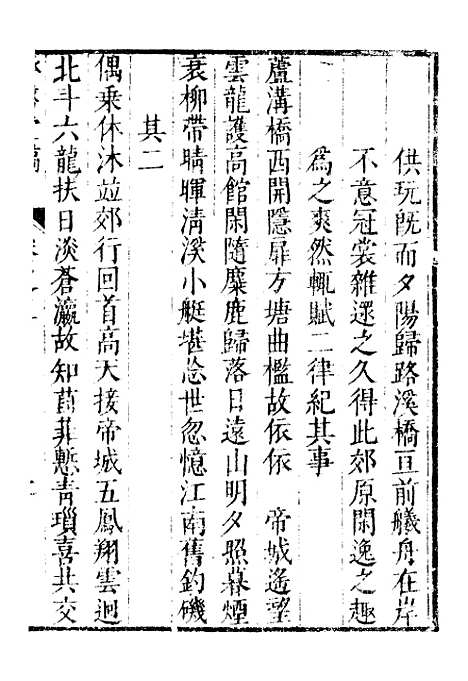 供玩旣而夕陽歸路溪橋亘前艤舟在岸
不意冠裳雜遝之久得此郊原閑逸之趣
爲之爽然輒賦二律紀其事
蘆溝橋西開隱扉方塘曲檻故依依　帝城遙望
雲龍護高館閑隨麋鹿歸落日遠山明夕照暮煙
衰柳帶晴暉淸溪小艇堪忘世忽憶江南舊釣磯
其二
偶乘休沐竝郊行回首高天接帝城五鳳翔雲迴
北斗六龍扶日淡蒼瀛故知葑菲慙靑瑣喜共交